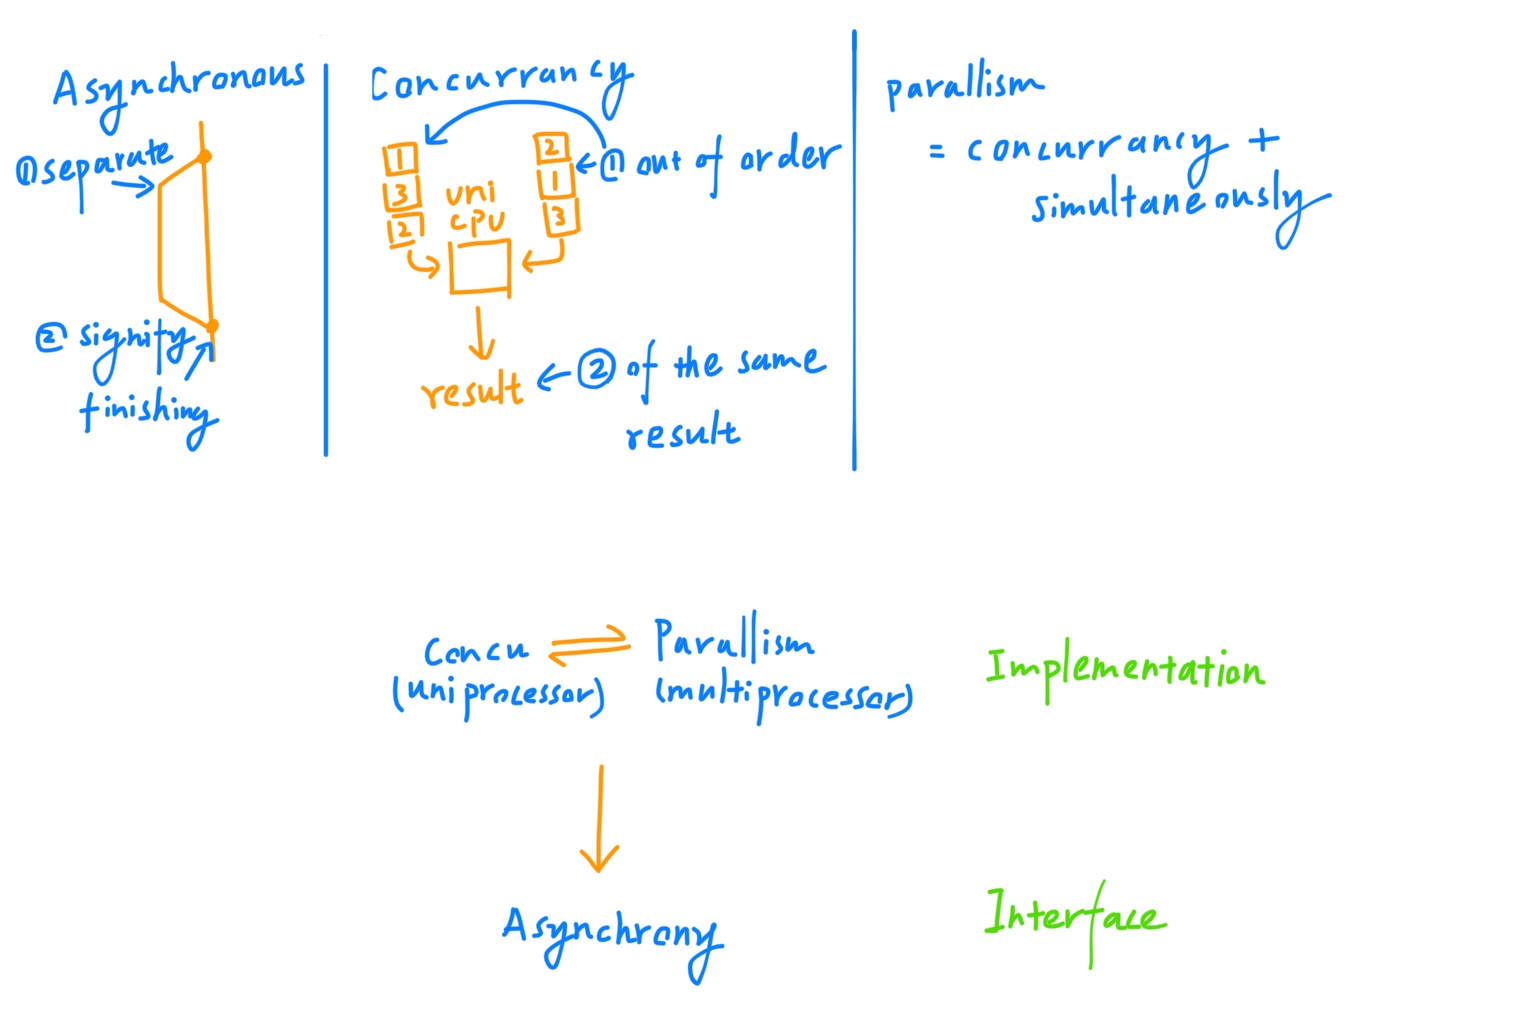 Asynchronous
① separate
② signify
finishing
Concurrancy
1
3
2
uni
cpu
2
1
3
① out of order
result
② of the same
result
parallism
= concurrancy +
simultaneously
Concu
(uniprocessor)
Parallism
(multiprocessor)
Implementation
Asynchrony
Interface